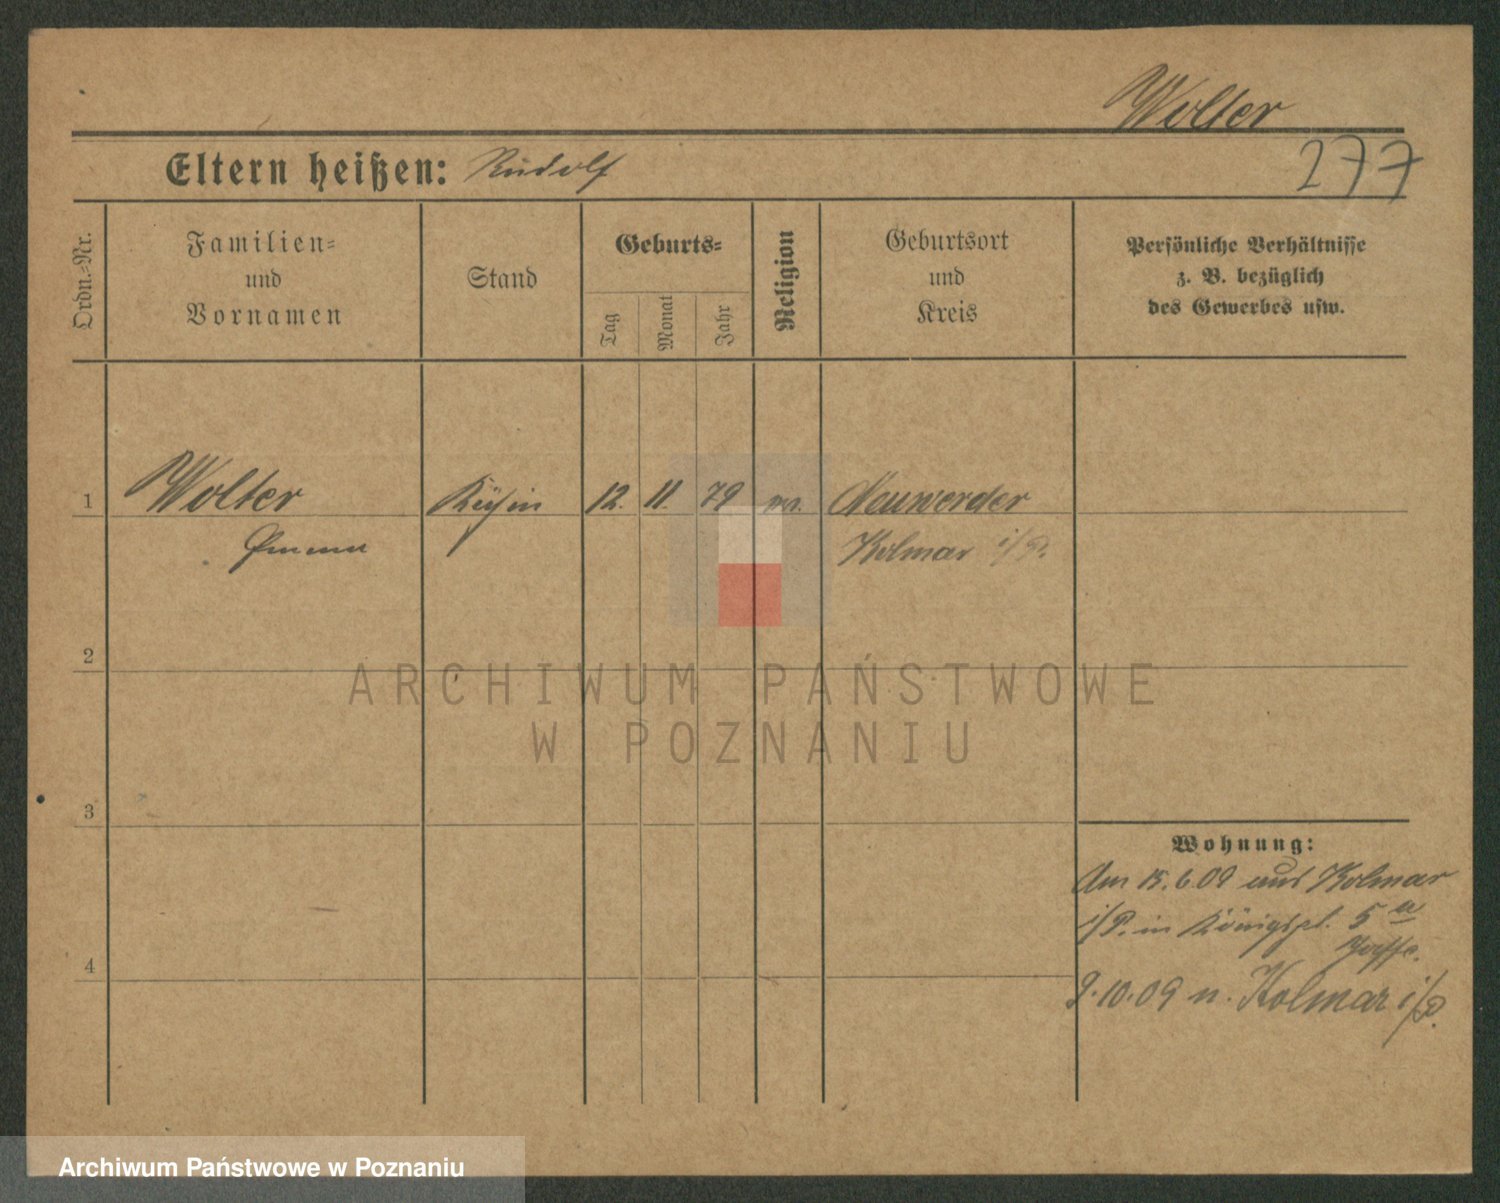 Wolter
Eltern heißen: Rudolf
277
Ordn.=Nr.
Familien=
und
Vornamen
Stand
Geburts=
Tag
Monat
Jahr
Religion
Geburtsort
und
Kreis
Persönliche Verhältnisse
z. B. bezüglich
des Gewerbes usw.
1
Wolter
Emma
Köchin
12. 11. 79
Neuwerder
Kolmar i/P.
2
3
4
Wohnung:
Am 15.6.09 aus Kolmar
i/P. in Königspl. 5
9.10.09 n. Kolmar i/P.
ARCHIWUM PAŃSTWOWE
W POZNANIU
Archiwum Państwowe w Poznaniu